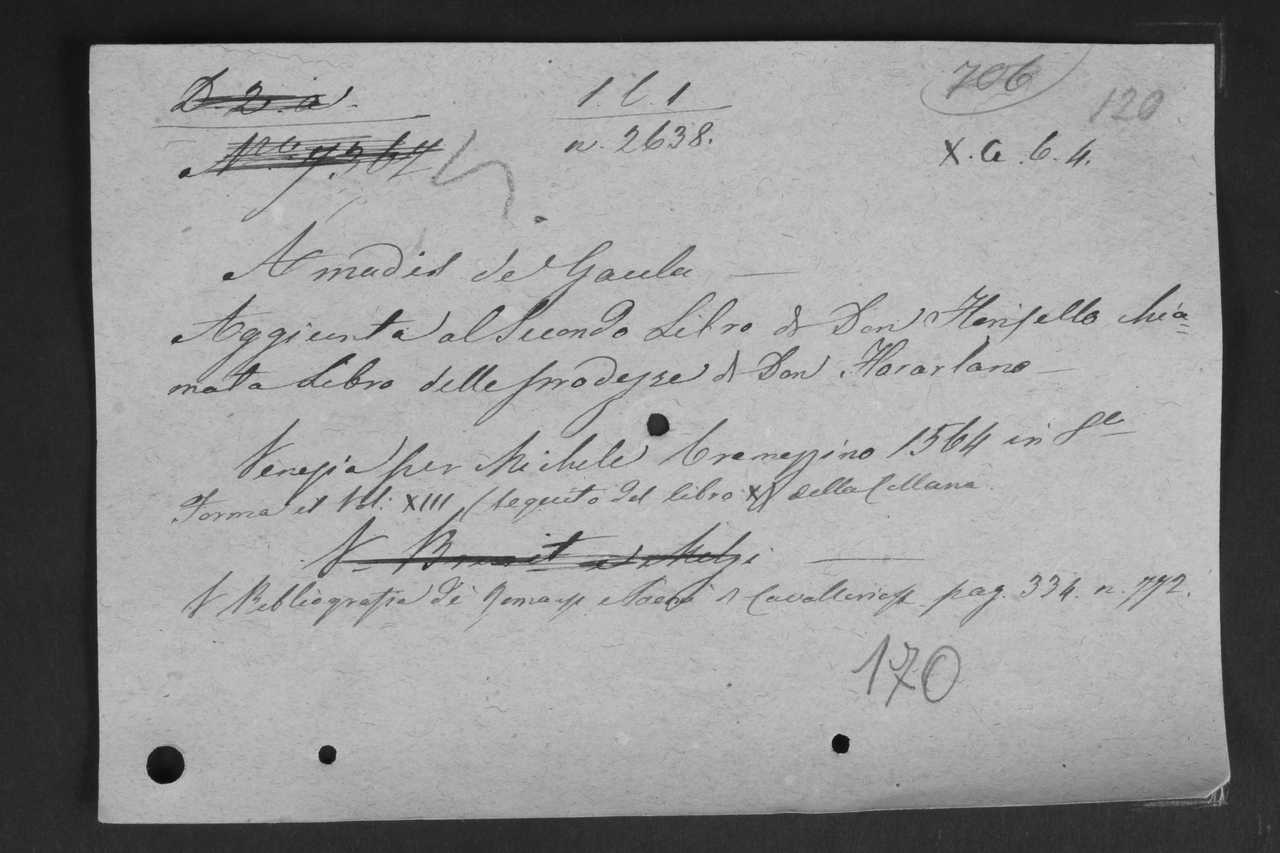 D. 2. a.
1. C. 1
706
120
Nro 7367
n. 2638.
X. G. 6. 4.
Amadis de Gaula —
Aggiunta al Secondo Libro di Don Florisello chia=
mata Libro delle prodezze di Don Florarlano —
Venezia per Michele Tramezzino 1564 in 8o
Forma il Vol. XIII (seguito del libro X) della Collana.
V. Brunet e Melzi —
V Bibliografia dei Romanzi e Poemi di Cavalleria pag. 334. n. 772.
170